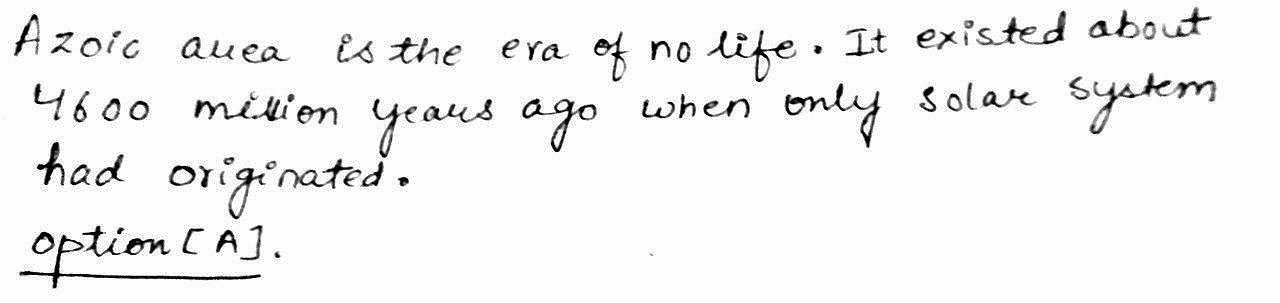 Azoic area is the era of no life. It existed about
4600 million years ago when only solar system
had originated.
option [A].